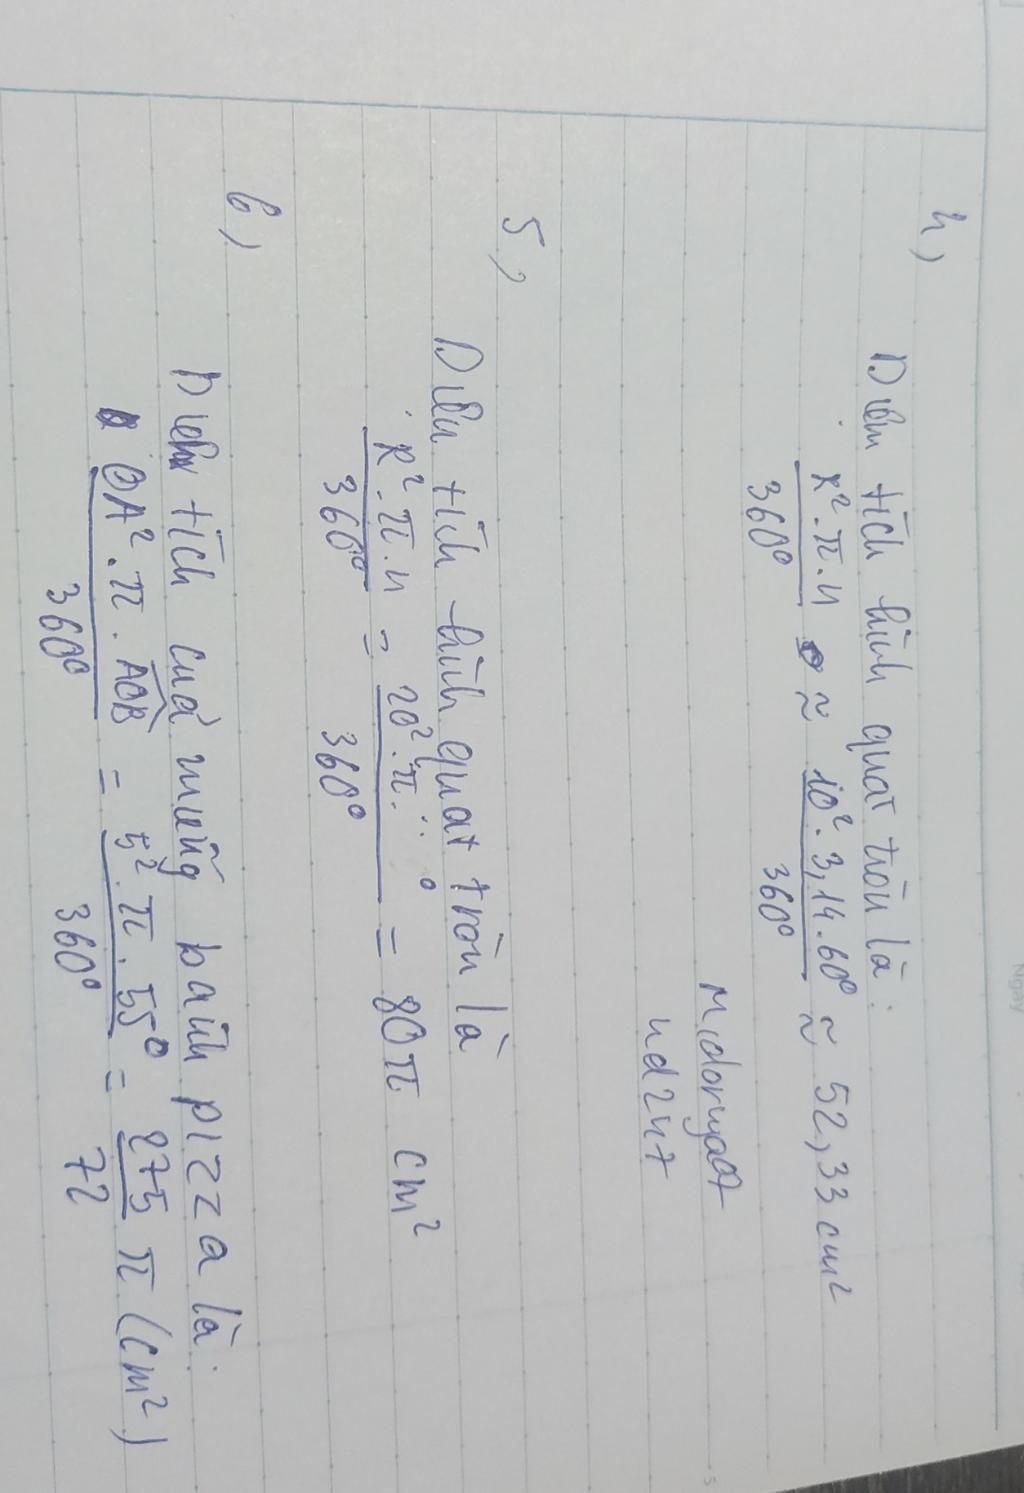 4,
Diện tích hình quạt tròn là:
R².π.n / 360° ≈ 10².3,14.60° / 360° ≈ 52,33 cm²
5,
Diện tích hình quạt tròn là
R².π.n / 360° = 20².π. ° / 360° = 80π cm²
6,
Diện tích của miếng bánh pizza là:
OA².π.AOB / 360° = 5².π.55° / 360° = 275 / 72 π (cm²)
Ngày